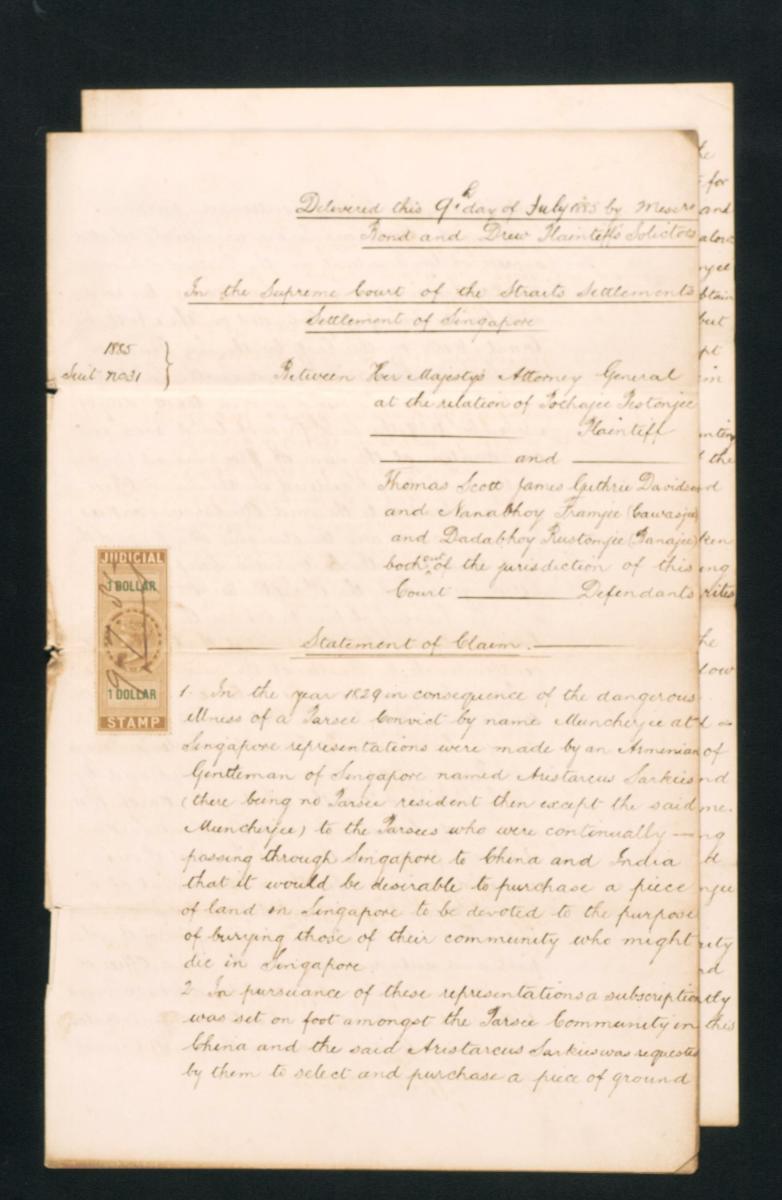 Delivered this 9th day of July 1885 by Messrs
Bond and Drew Plaintiff's Solicitors
In the Supreme Court of the Straits Settlements
Settlement of Singapore
1885
Suit No 31
Between Her Majesty's Attorney General
at the relation of Pochajee Pestonjee
Plaintiff
and
Thomas Scott James Guthrie Davidson
and Nanabhoy Framjee (Cawasjee)
and Dadabhoy Rustomjee (Banajee)
both out of the jurisdiction of this
Court Defendants
Statement of Claim.
JUDICIAL
1 DOLLAR
1 DOLLAR
STAMP
1. In the year 1829 in consequence of the dangerous
illness of a Parsee Convict by name Muncherjee at
Singapore representations were made by an Armenian
Gentleman of Singapore named Aristarcus Sarkies
(there being no Parsee resident then except the said
Muncherjee) to the Parsees who were continually
passing through Singapore to China and India
that it would be desirable to purchase a piece
of land in Singapore to be devoted to the purpose
of burying those of their community who might
die in Singapore
2 In pursuance of these representations a subscription
was set on foot amongst the Parsee Community in
China and the said Aristarcus Sarkies was requested
by them to select and purchase a piece of ground